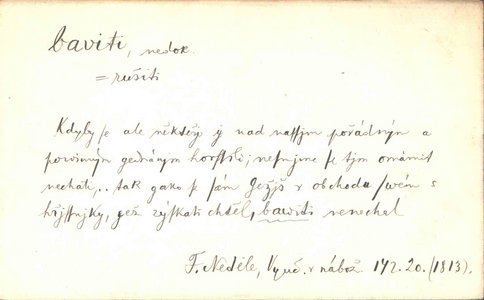 baviti, nedok.
= rušiti
Kdyby se ale někteřj y nad nassjm pořádným a
powinným gednánjm horssili; nesmjme se tjm omámit
nechati,.. tak gako se sám Gežjš w obchodu swém s
hřjssnjky, gež zýskati chtěl, bawiti nenechal
F. Neděle, Vyuč. v nábož. 142. 20. (1813).